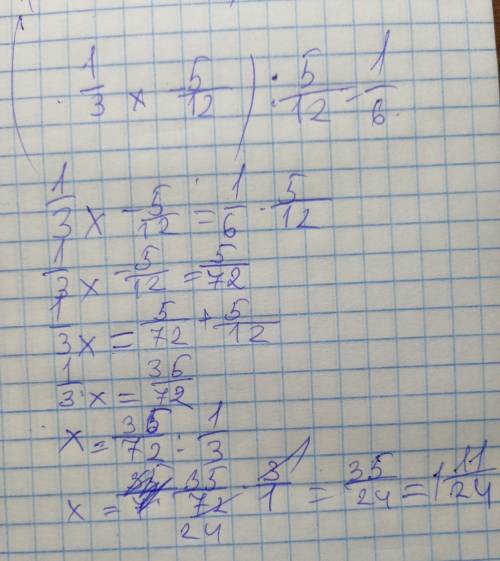 ( 1/3 x - 5/12 ) : 5/12 = 1/6
1/3 x - 5/12 = 1/6 · 5/12
1/3 x - 5/12 = 5/72
1/3 x = 5/72 + 5/12
1/3 x = 35/72
x = 35/72 : 1/3
x = 35/72 · 3/1 = 35/24 = 1 11/24
24